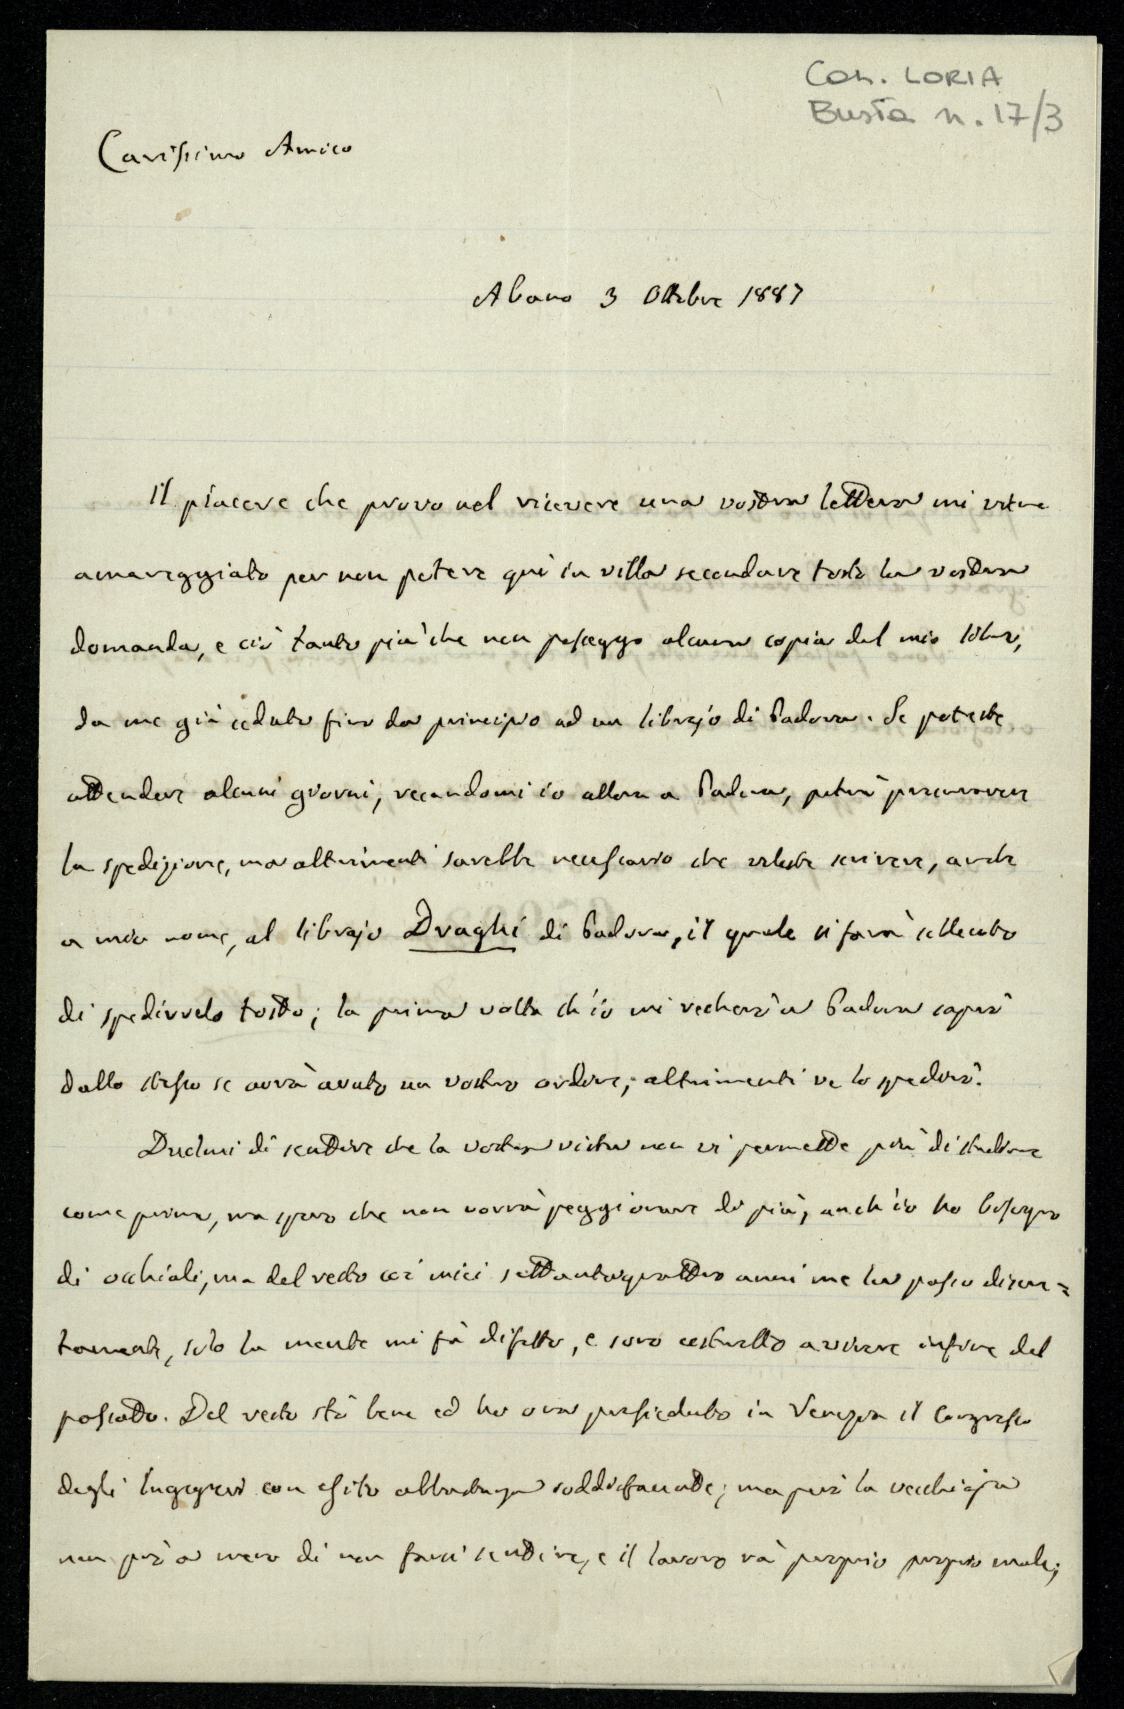 Con. LORIA
Busta n. 17/3
Carissimo Amico
Abano 3 Ottobre 1887
Il piacere che provo nel ricevere una vostra lettera mi viene
amareggiato per non potere quì in villa secondare tosto la vostra
domanda, e ciò tanto più che non posseggo alcuna copia del mio libro,
da me già ceduto fino da principio ad un librajo di Padova. Se poteste
attendere alcuni giorni, recandomi io allora a Padova, potrò procurarvene
la spedizione, ma altrimenti sarebbe necessario che voleste scrivere, anche
a mio nome, al librajo Draghi di Padova, il quale si farà sollecito
di spedirvelo tosto; la prima volta ch'io mi recherò a Padova saprò
dallo stesso se avrà avuto un vostro ordine; altrimenti ve lo spedirò.
Duolmi di sentire che la vostra vista non vi permette più di studiare
come prima, ma spero che non vorrà peggiorare di più; anch'io ho bisogno
di occhiali, ma del resto coi miei settantaquattro anni me la passo discre=
tamente, solo la mente mi fà difetto, e sono costretto a vivere infine del
passato. Del resto stò bene ed ho ora presieduto in Venezia il Congresso
degli Ingegneri con esito abbastanza soddisfacente; ma però la vecchiaja
non può a meno di non farsi sentire, e il lavoro và proprio proprio male;